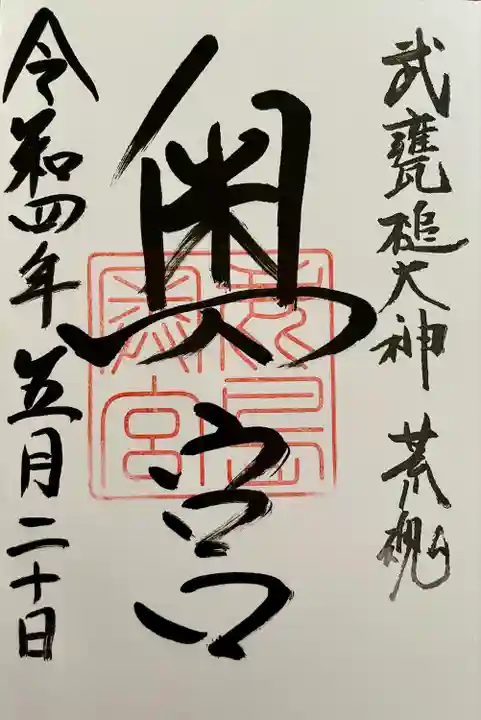 武甕槌大神 荒魂
奥宮
令和四年五月二十日